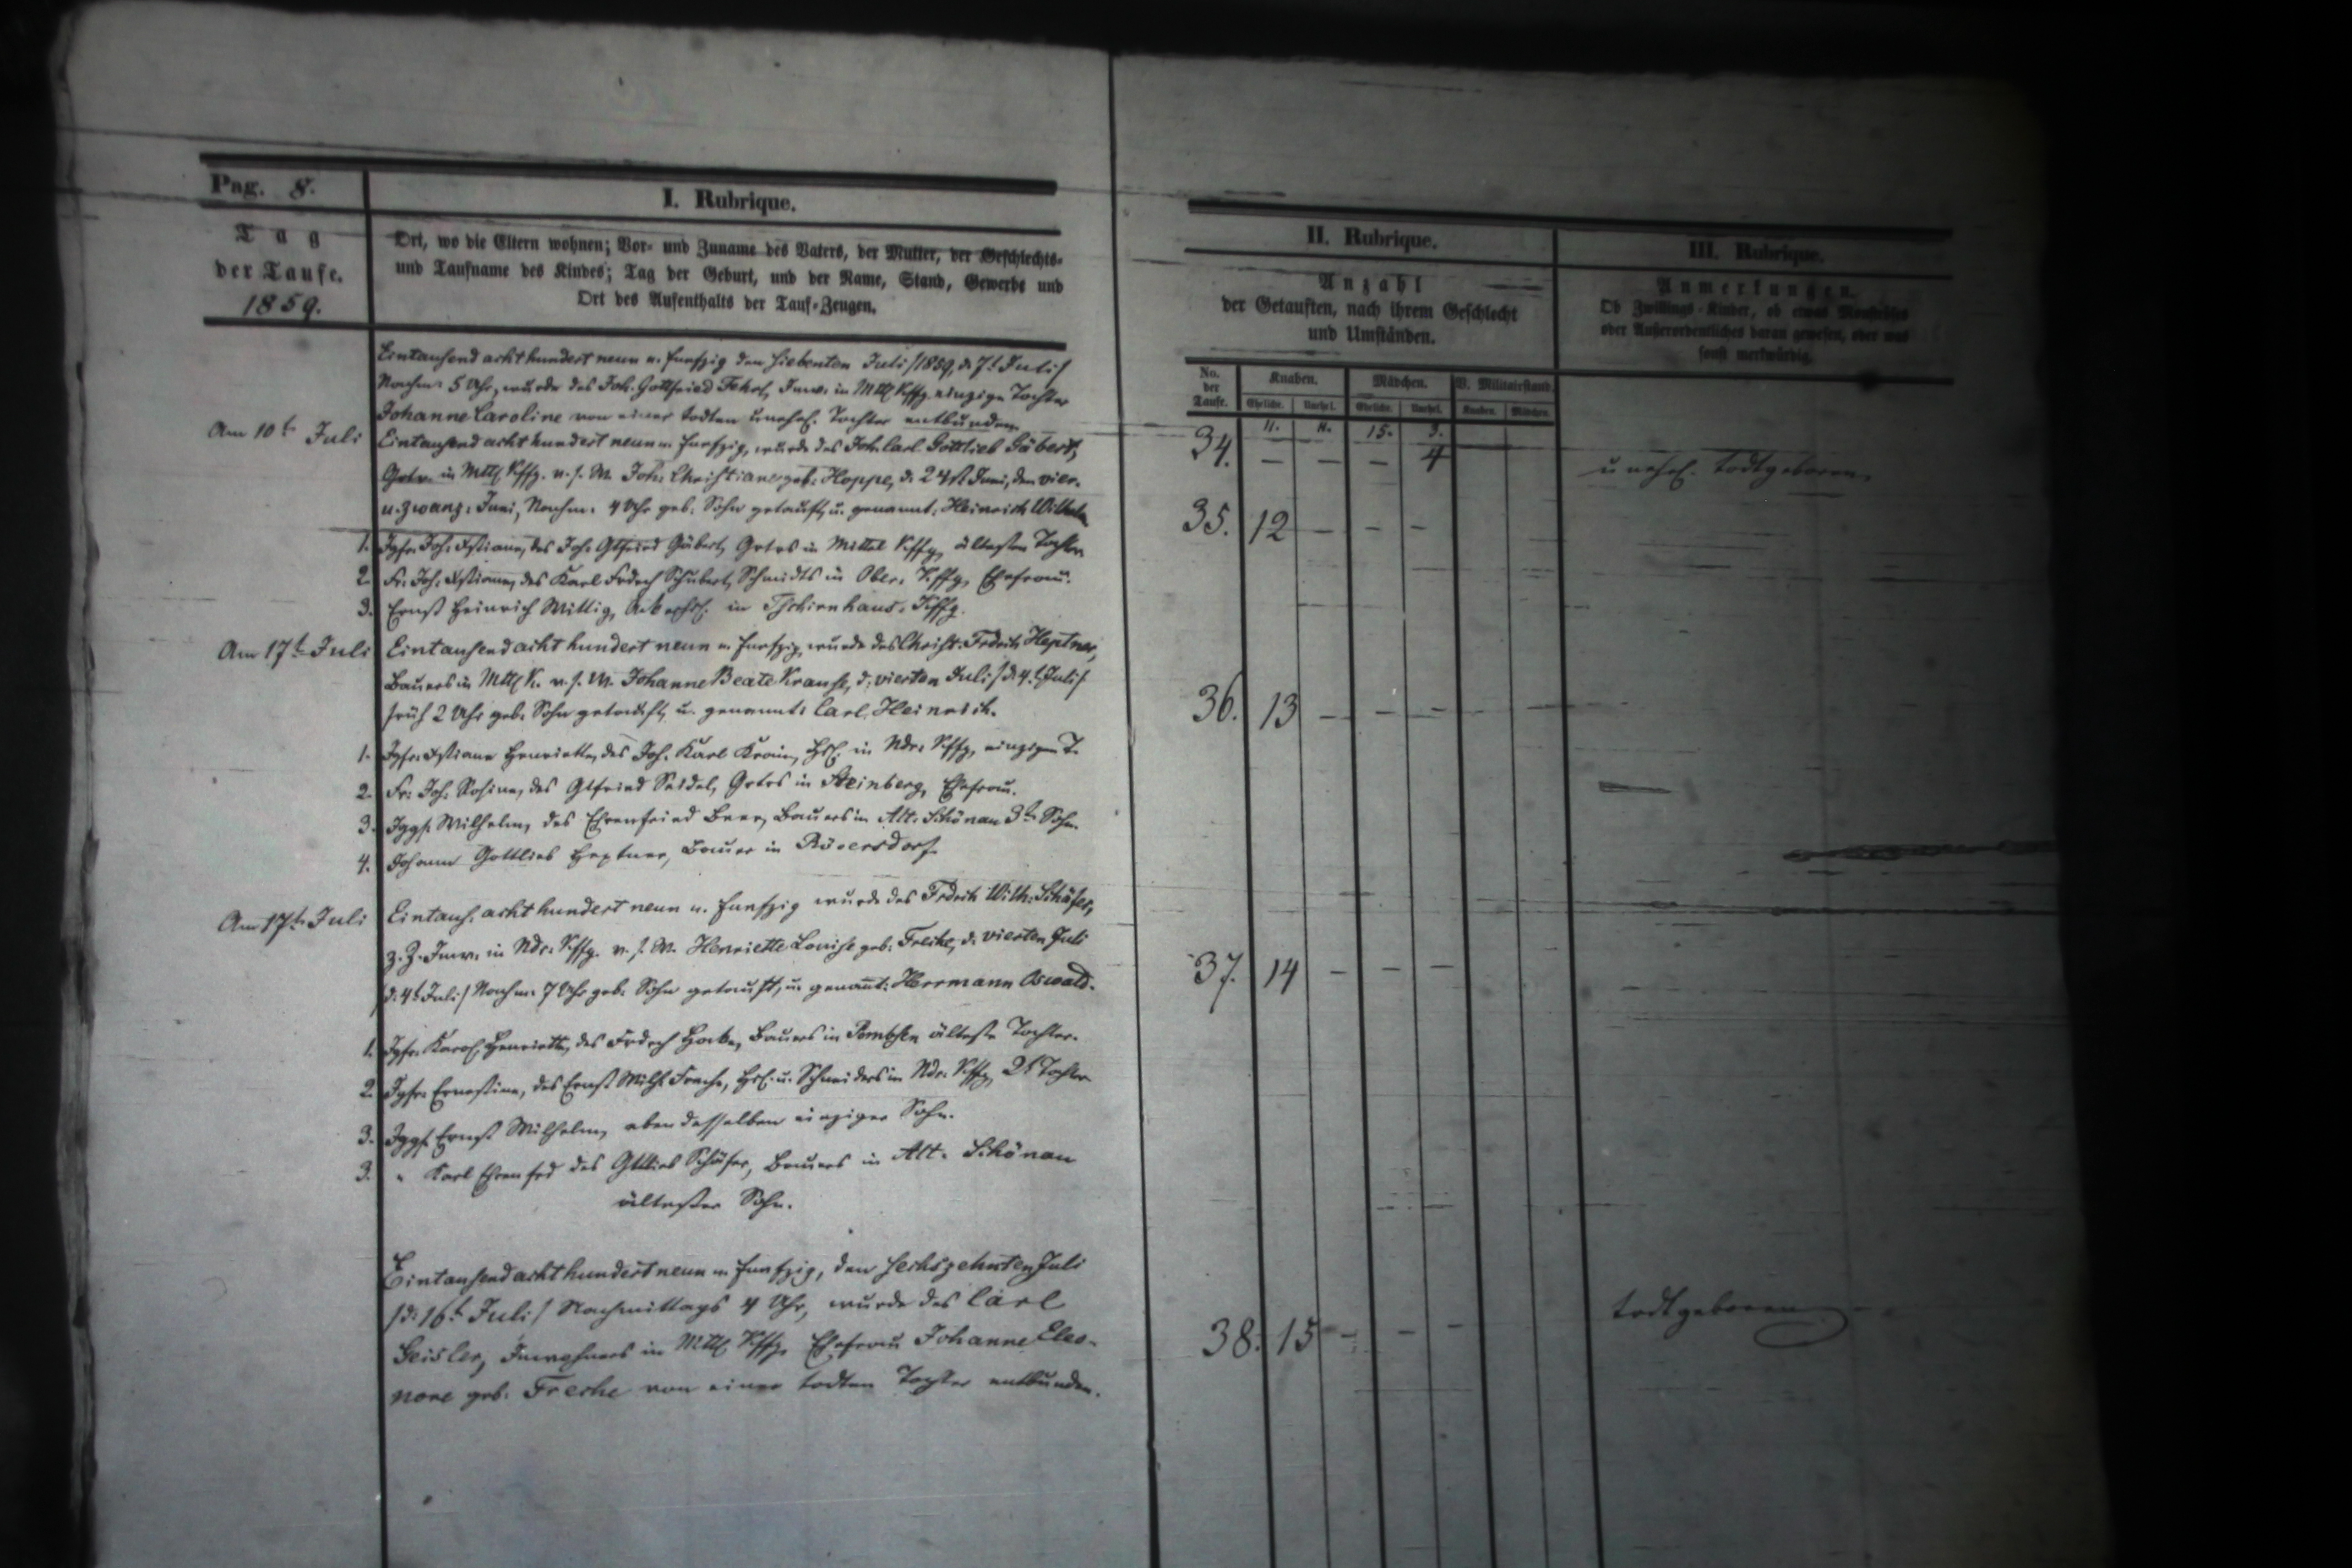 Pag. 8.
I. Rubrique.
Tag
der Taufe.
1859.
Ort, wo die Eltern wohnen; Vor- und Zuname des Vaters, der Mutter, der Geschlechts-
und Taufname des Kindes; Tag der Geburt, und der Name, Stand, Gewerbe und
Ort des Aufenthalts der Tauf-Zeugen.
Eintausend acht hundert neun u. funfzig den siebenten Juli /1859, d. 7t Juli/
Nachm: 5 Uhr, wurde des Joh. Gottfried in Mttl Kffg. einzige Tochter
Johanne Caroline von einer todten unehel. Tochter entbunden.
Am 10t Juli
Eintausend acht hundert neun u. funfzig, wurde des Joh. Carl Gottlieb Gäbert,
in Mttl Kffg. v. s. W. Joh: Christiane geb: Hoppe, d. 24st Juni, den vier-
u. zwanz: Juni, Nachm: 4 Uhr geb. Sohn getauft, u. genannt: Heinrich Wilhelm
1. Jgfr. Joh: Xstiane, des Joh: Gtfried Gäbert, in Mittel Kffg, ältesten Tochter
2. Fr: Joh: Xstiane, des Karl Frdrch Schubert, Schmidts in Ober: Kffg, Ehefrau.
3. Ernst Heinrich Wittig, in Tschirnhaus: Kffg.
Am 17t Juli
Eintausend acht hundert neun u. funfzig wurde des Christ: Frdrch Heptner,
Bauers in Mttl K. v. s. W. Johanne Beate Krause, d: vierten Juli / d. 4t Juli/
früh 2 Uhr geb: Sohn getauft, u. genannt: Carl Heinrich.
1. Jgfr: Xstiane Henriette, des Joh. Karl in Ndr: Kffg, einzige T.
2. Fr: Joh: Rosine, des Gtfried Seidel, in Steinberg, Ehefrau.
3. Jggs. Wilhelm, des Ehrenfried Beer, Bauers in Alt: Schönau 3t Sohn
4. Johann Gottlieb Heptner, Bauer in Röversdorf
Am 17t Juli
Eintaus: acht hundert neun u. funfzig wurde des Frdrch Wilh: Schäfer,
z. Z. Inw: in Ndr: Kffg. v. s. W. Henriette Louise geb: Freche, d. vierten Juli
/d: 4t Juli/ Nachm: 7 Uhr geb: Sohn getauft, u. genant: Herrmann Oswald.
1. Jgfr. Karol. Henriette, des Frdrch Bauers in Pombsen älteste Tochter.
2. Jgfr: Ernestine, des Ernst Wilh. Freche, u. Schneiders in Ndr: Kffg, 2t Tochter
3. Jggs. Ernst Wilhelm, eben desselben einziger Sohn.
3. " Karl Ehrenfrd des Gttlieb Schäfer, Bauers in Alt: Schönau
ältester Sohn.
Eintausend acht hundert neun u. funfzig, den sechszehnten Juli
/d: 16t Juli/ Nachmittags 4 Uhr, wurde des Carl
Geisler, Inwohners in Mttl Kffg, Ehefrau Johanne Eleo-
nore geb: Freche von einer todten Tochter entbunden.
II. Rubrique.
Anzahl
der Getauften, nach ihrem Geschlecht
und Umständen.
No.
der
Taufe.
Knaben. Mädchen. V. Militairstand.
Eheliche. Unehel. Eheliche. Unehel. Knaben. Mädchen.
11. 15. 3.
34. — — — 4
35. 12 — — —
36. 13 — — —
37. 14 — — —
38. 15 — — —
III. Rubrique.
Anmerkungen.
Ob Zwillings-Kinder, ob etwas Monströses
oder Außerordentliches daran gewesen, oder was
sonst merkwürdig.
unehel. todtgeboren.
todtgeboren